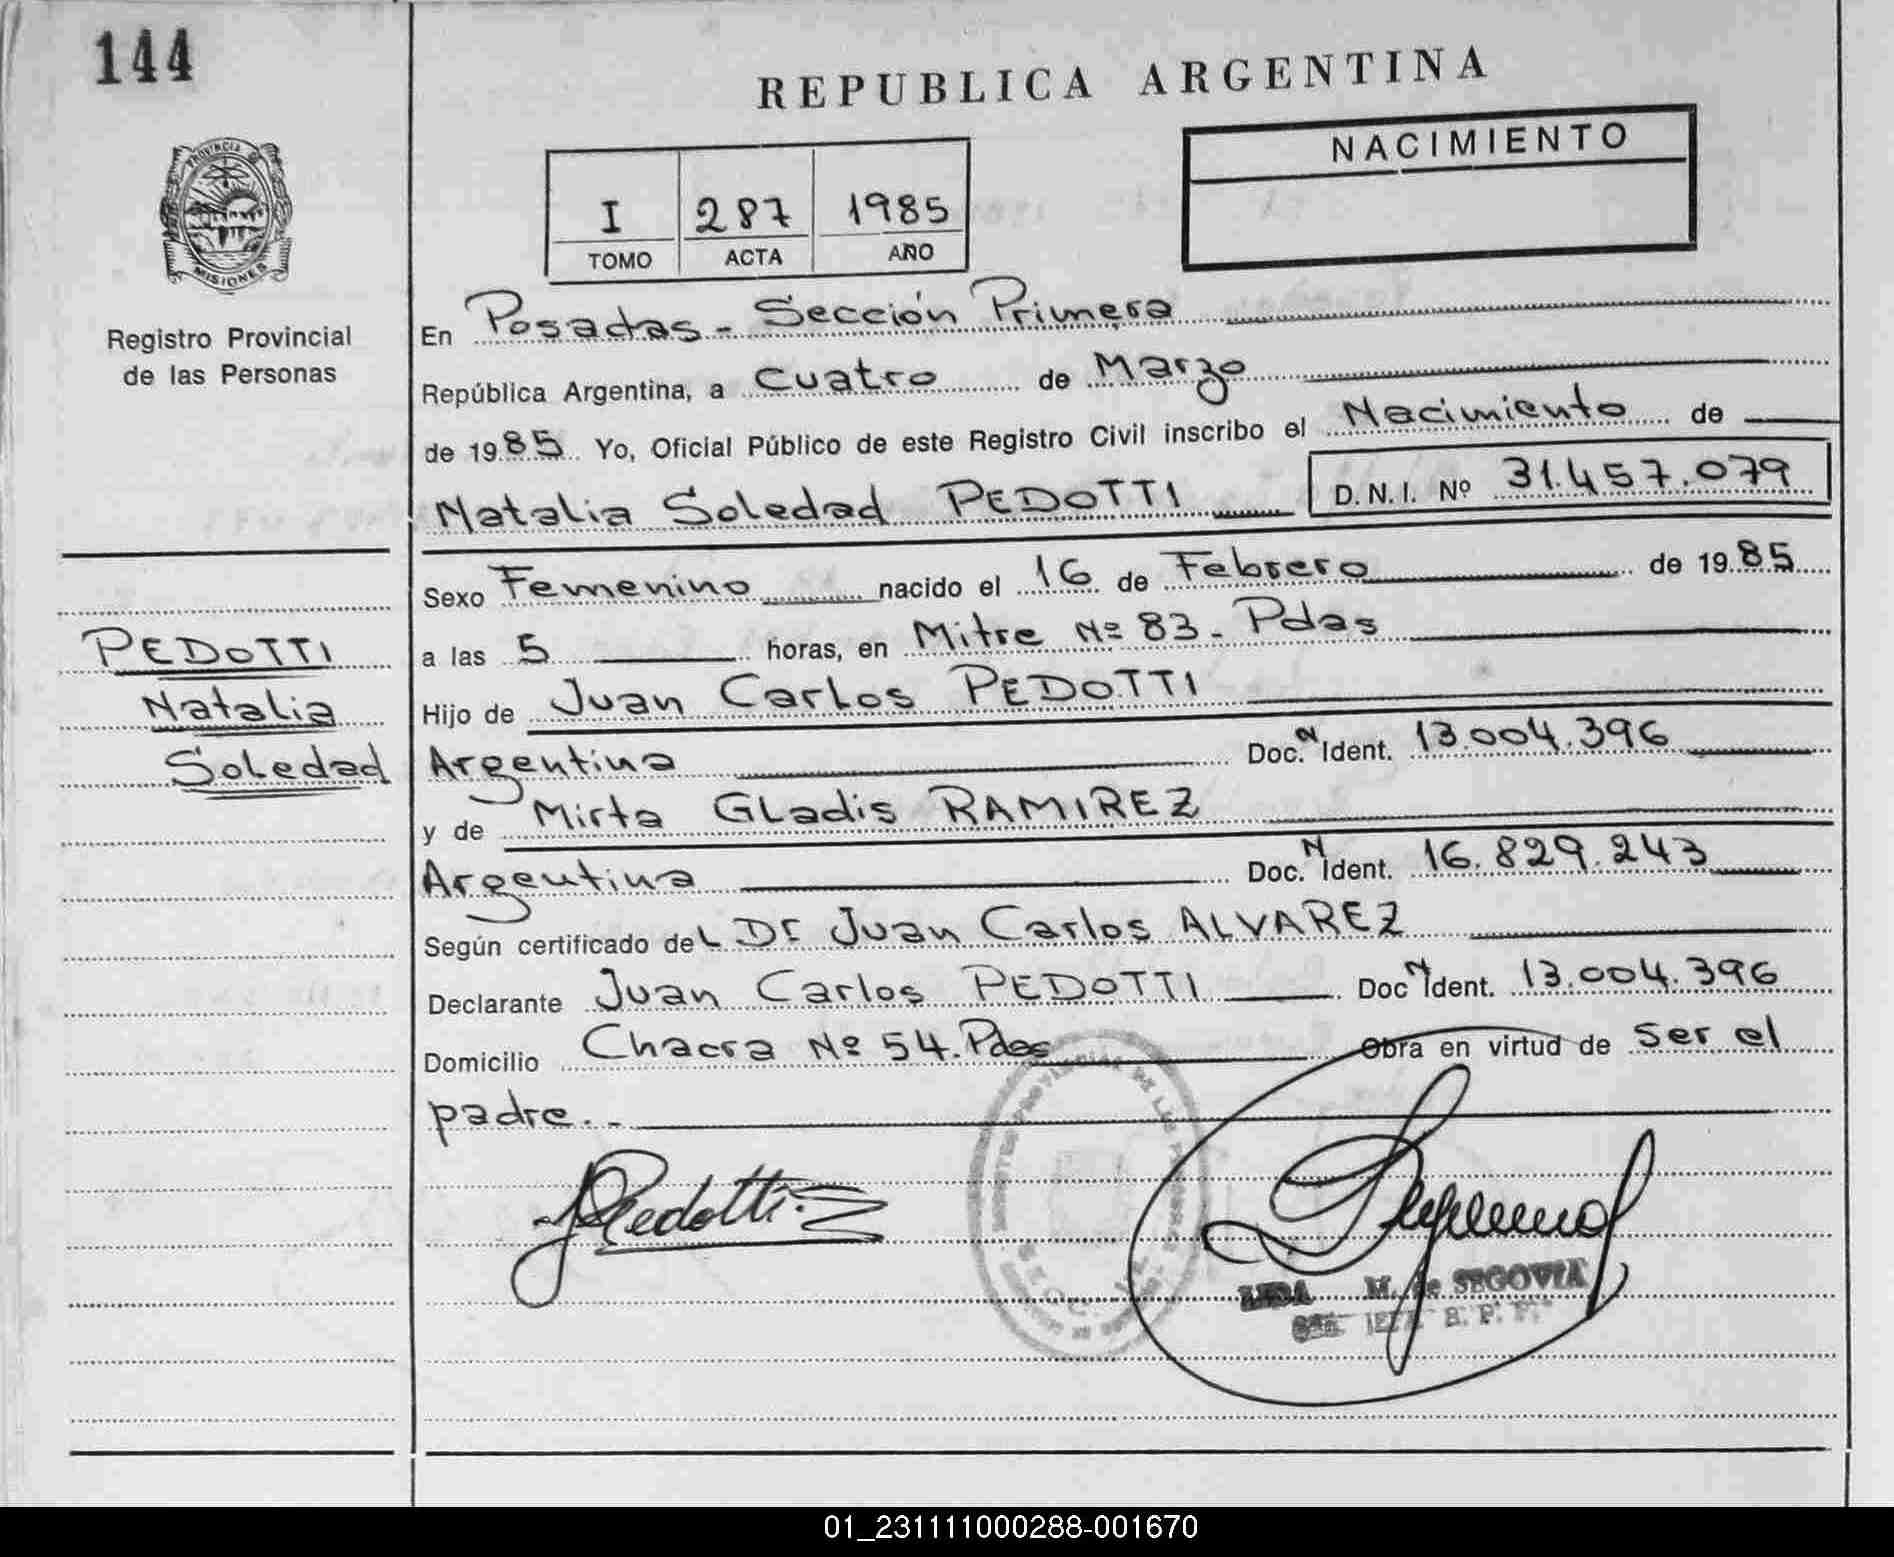 144
REPUBLICA ARGENTINA
NACIMIENTO
PROVINCIA DE
MISIONES
I 287 1985
TOMO ACTA AÑO
Registro Provincial
de las Personas
En Posadas - Sección Primera
República Argentina, a Cuatro de Marzo
de 1985 Yo, Oficial Público de este Registro Civil inscribo el Nacimiento de
Natalia Soledad PEDOTTI D.N.I. Nº 31.457.079
Sexo Femenino nacido el 16 de Febrero de 1985
PEDOTTI
Natalia
Soledad
a las 5 horas, en Mitre Nº 83 - Pdas
Hijo de Juan Carlos PEDOTTI
Argentina Doc. N Ident. 13.004.396
y de Mirta Gladis RAMIREZ
Argentina Doc. N Ident. 16.829.243
Según certificado del Dr Juan Carlos ALVAREZ
Declarante Juan Carlos PEDOTTI Doc N Ident. 13.004.396
Domicilio Chacra Nº 54. Pdas Obra en virtud de ser el
padre.-
Pedotti
M. de SEGOVIA
01_231111000288-001670